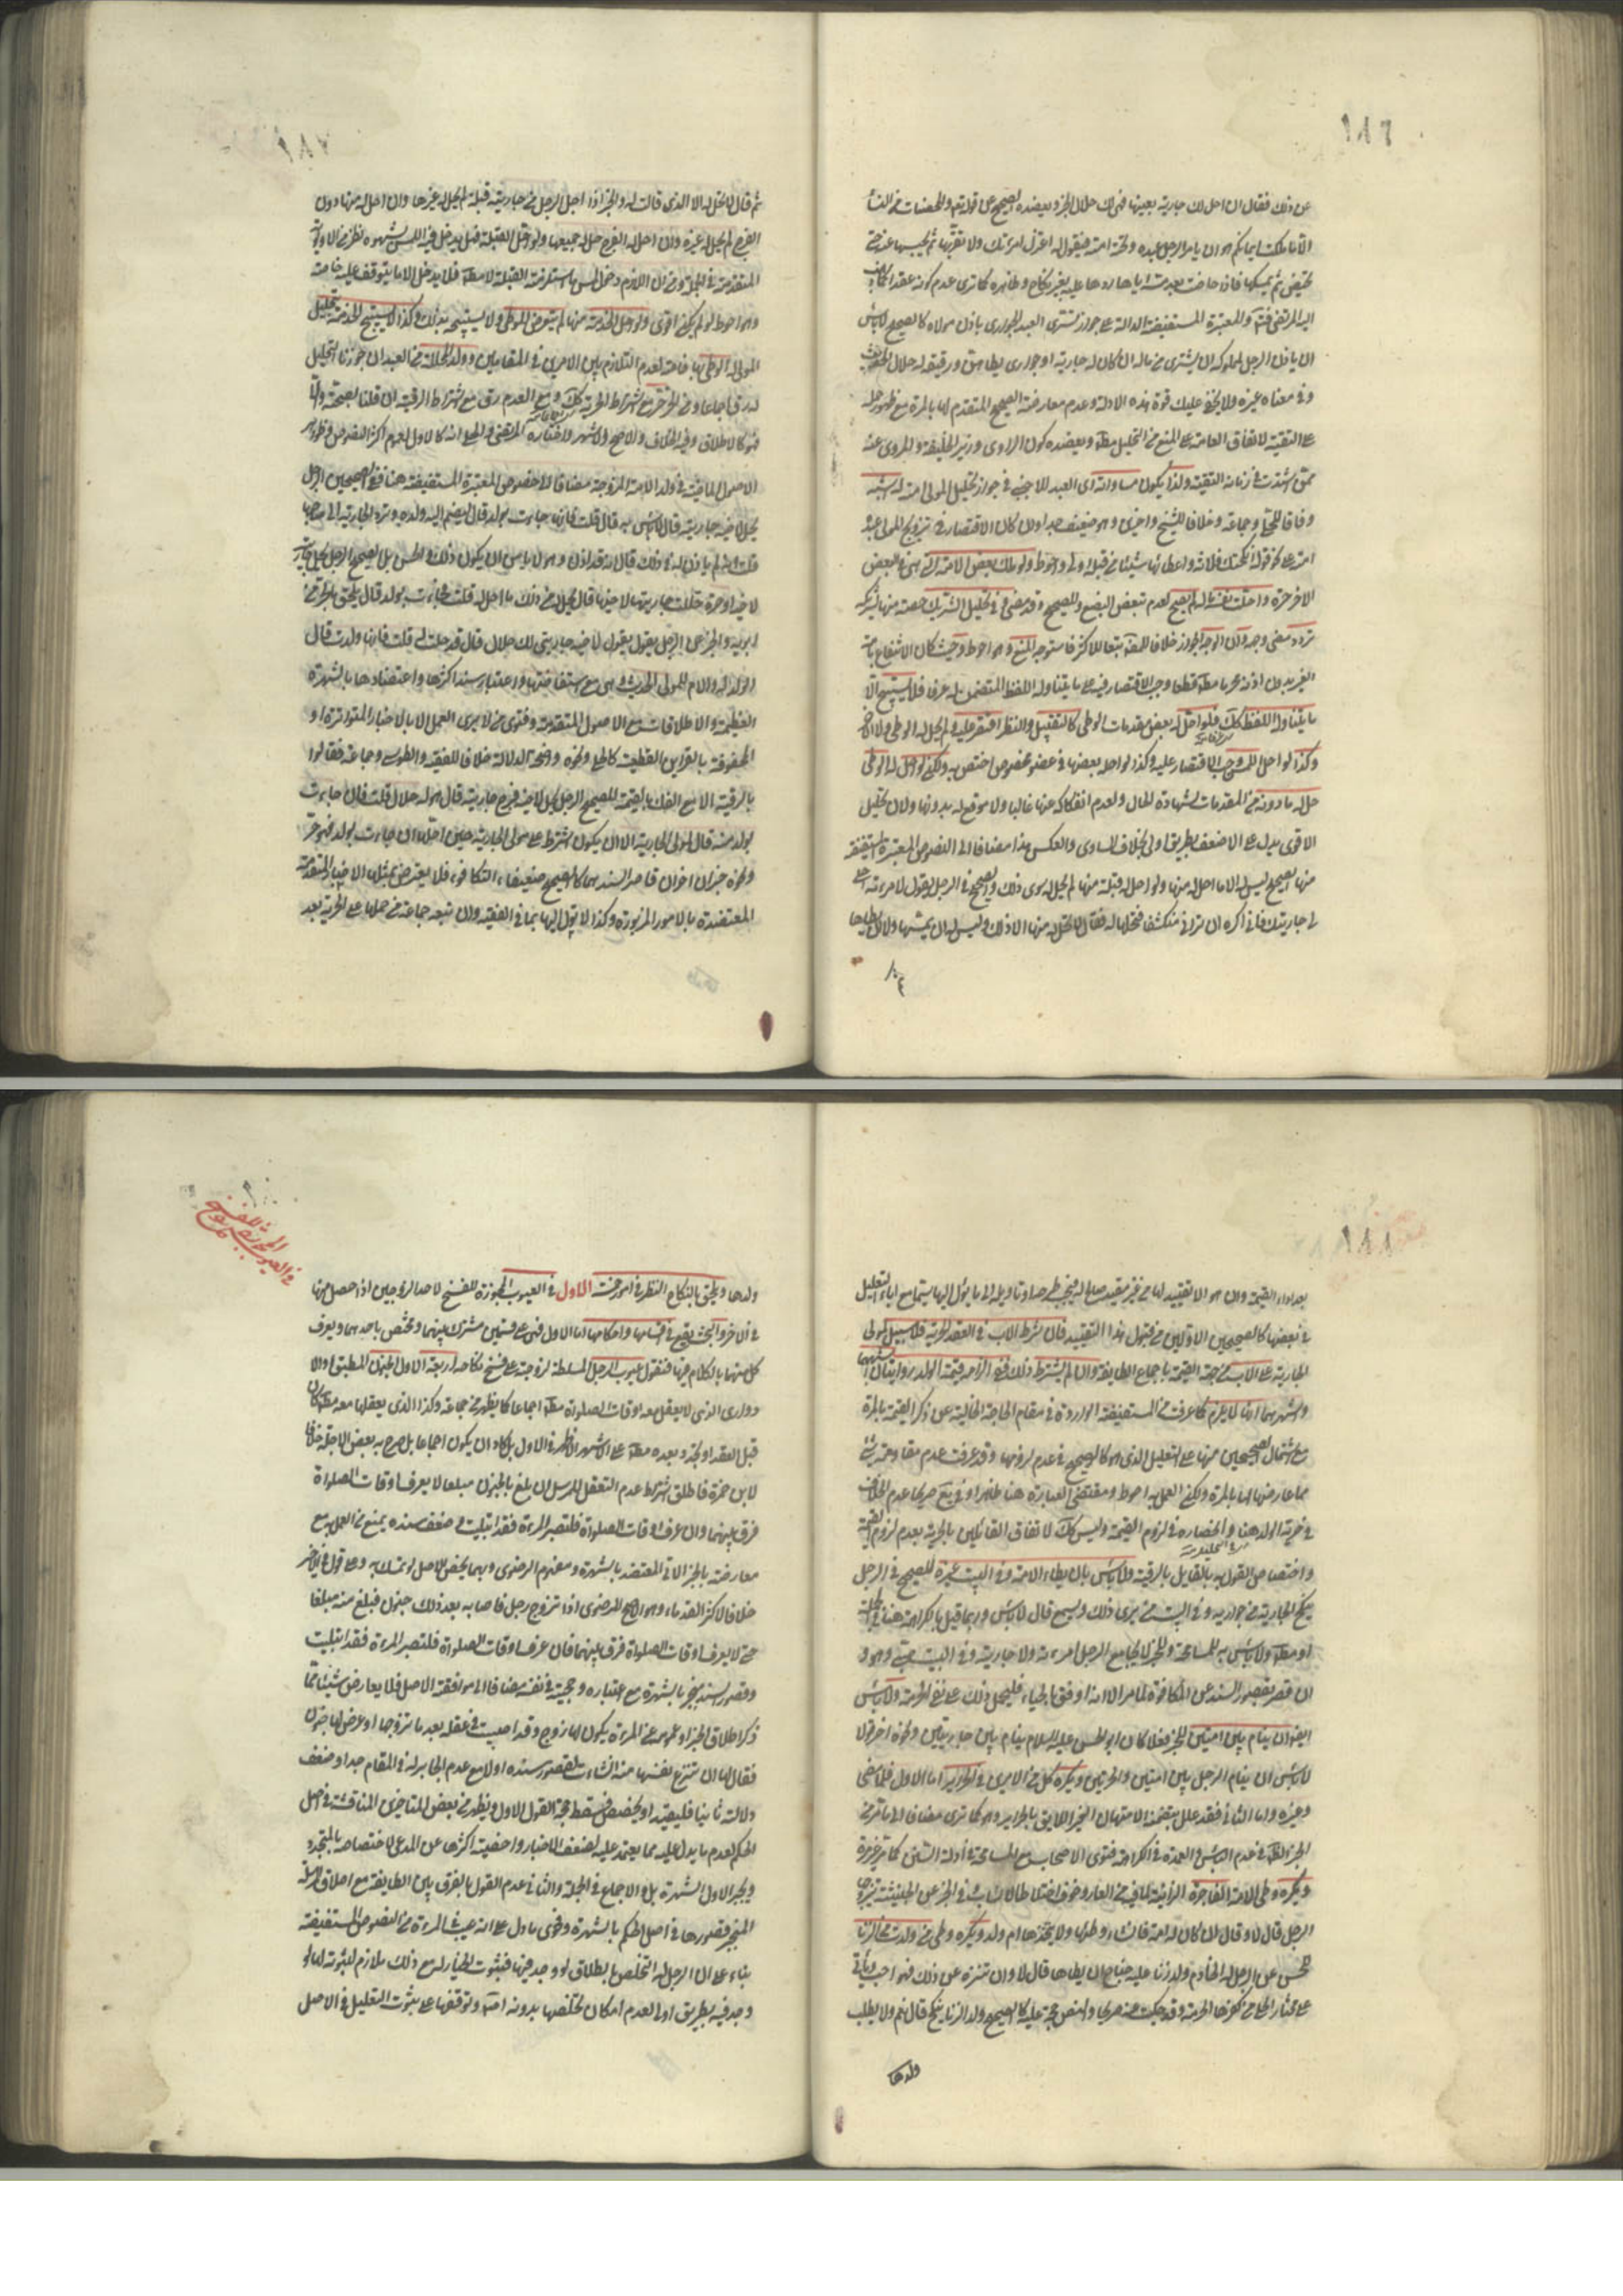 ١٨٦
عن ذلك فقال ان احل لك جارية بعينها فهى لك حلال الخبر ويعضده الصحيح عن قوله تعالى والمحصنات من النساء
الا ما ملكت ايمانكم هو ان يامر الرجل عبده وتحته امته فيقول له اعتزل امرئتك ولا تقربها ثم يحبسها عنه حتى
تحيض ثم يمسكها فاذا حاضت بعد مسه اياها ردها عليه بغير نكاح وظاهره كما ترى عدم كونه عقدا
اليه المرتضى والمعتبرة المستفيضة الدالة على جواز تسرى العبد الجوارى باذن مولاه كالصحيح لا باس
ان ياذن الرجل لمملوكه ان يشترى من ماله ان كان له جارية او جوارى يطاهن ورقيقه له حلال
وفى معناه غيره ولا يخفى عليك قوة هذه الادلة وعدم معارضة الصحيح المتقدم لها بالمرة مع ظهور حمله
على التقية لاتفاق العامة على المنع من التحليل ويعضده كون الراوى وزير الخليفة والمروى عنه
ممن اشتدت فى زمانه التقية ولذا يكون مساواته اى العبد للاجنبى فى جواز تحليل المولى امته له اشبه
وفاقا للحلى وجماعة وخلافا للشيخ واخرى وهو ضعيف جدا وان كان الاقتصار فى تزويج المولى عبده
امته على نحو قوله انكحتك فلانة واعطائها شيئا من قبله اولى واحوط ولو ملك بعض الامة التى هى فى البعض
الاخر حرة واحلت نفسها له لم يصح لعدم تبعض البضع وللصحيح وقد مضى وفى تحليل الشريك حصته منها لشريكه
تردد مضى وجهه وان الوجه الجواز خلافا للمصنف تبعا للاكثر فاستوجه المنع وهو احوط وحيث كان الانتفاع بامة
الغير بدون اذنه محرما قطعا وجب الاقتصار فيه على ما يتناوله اللفظ المتضمن له عرفا فلا يستبيح الا
ما يتناوله اللفظ فلو احل له بعض مقدمات الوطى كالتقبيل والنظر اقتصر عليه ولم يحل له الوطى ولا الاخر
وكذا لو احل اللمس وجب الاقتصار عليه وكذا لو احل بعضها فى عضو مخصوص اختص به ولكن لو احل له الوطى
حل له ما دونه من المقدمات لشهادة الحال ولعدم انفكاكه عنها غالبا ولا موقع له بدونها ولان تحليل
الاقوى يدل على الاضعف بطريق اولى بخلاف المساوى والعكس هذا مضافا الى النصوص المعتبرة المستفيضة
منها الصحيح ليس له الا ما احل له منها ولو احل له قبلة منها لم يحل له سوى ذلك والصحيح فى الرجل يقول لامرئته احلى
لى جاريتك فانى اكره ان ترانى منكشفا فتحلها له فقال لا يحل له منها الا ذلك وليس له ان يمسها ولا ان يطاها
١٨٧
ثم قال لا تحل له الا الذى قالت له والخبر اذا احل الرجل من جاريته قبلة لم يحل له غيرها وان احل له منها دون
الفرج لم يحل له غيره وان احل له الفرج حل له جميعها ولو احل القبلة فهل يدخل فيه اللمس بشهوة نظر من الاولوية
المتقدمة فى الجملة ومن ان اللازم دخول لمس ما استلزمته القبلة لا مطلقا فلا يدخل الا ما يتوقف عليه خاصة
وهو احوط لو لم يكن اقوى ولو احل الخدمة منها لم يتعرض للوطى ولا يستبيحه بذلك وكذا لا يستبيح الخدمة بتحليل
المولى له الوطى بها فانه لعدم التلازم بين الامرين فى المقامين وولد المحللة من العبد ان جوزنا التحليل
له رق اجماعا ومن الحر حر مع اشتراط الحرية ومع العدم رق مع اشتراط الرقية ان قلنا بصحته والا
فهو كالاطلاق وفيه الخلاف والاصح والاشهر واختاره المرتضى والحلى انه كالاول لعموم اكثر النصوص وظواهر
الاصول الماضية فى ولد الامة المزوجة مضافا الى خصوص المعتبرة المستفيضة هنا ففى الصحيحين الرجل
يحل لاخيه جاريته قال لا باس به قال قلت فانها جاءت بولد قال يضم اليه ولده وترد الجارية الى صاحبها
قلت انه لم ياذن له فى ذلك قال انه قد اذن له وهو لا يامن ان يكون ذلك والحسن بل الصحيح الرجل يحل جاريته
لاخيه او حرة حللت جاريتها لاخيها قال يحل له من ذلك ما احل له قلت فجاءت بولد قال يلحق بالحر من
ابويه والخبر عن الرجل يقول لاخيه جاريتى لك حلال قال قد حلت له قلت فانها ولدت قال
الولد له والام للمولى الحديث وهى مع استفاضتها واعتبار سند اكثرها واعتضادها بالشهرة
العظيمة والاطلاقات مع الاصول المتقدمة وفتوى من لا يرى العمل الا بالاخبار المتواترة او
المحفوفة بالقراين القطعية كالحلى ونحوه واضحة الدلالة خلافا للفقيه والطوسى وجماعة فقالوا
بالرقية الا مع الفك بالقيمة للصحيح الرجل يحل لاخيه فرج جاريته قال هو له حلال قلت فان جاءت
بولد منه قال لمولى الجارية الا ان يكون اشترط على مولى الجارية حين احلها ان جاءت بولد فهو حر
ونحوه خبران اخران قاصر السند هما كالصحيح ضعيفا التكافؤ فلا يعترض بمثلها الاخبار المتقدمة
المعتضدة بالامور المزبورة وكذا لا يؤل اليها بما فى الفقيه وان تبعه جماعة من حملها على الحرية بعد
١٨٨
بعد اداء القيمة وان هو الا تقييد لها من غير مقيد صالح له فيجب طرحها او تاويلها الى ما يؤل اليها سيما مع اباء التعليل
فى بعضها كالصحيحين الاولين من قبول هذا التقييد فان شرط الاب فى العقد الحرية فلا سبيل لمولى
الجارية على الاب من جهة القيمة باجماع الطايفة وان لم يشترط ذلك ففى الزامه قيمة الولد روايتان اشبههما
واشهرهما انها لا يلزم كما عرفت من المستفيضة الواردة فى مقام الحاجة الخالية عن ذكر القيمة بالمرة
مع اشتمال الصحيحين منها على التعليل الذى هو كالصريح فى عدم لزومها وقد عرفت عدم مقاومة شئ
مما عارضها لها بالمرة ولكن العمل به احوط ومقتضى العبارة هنا ظاهرا وفى يع صريحا عدم الخلاف
فى حرية الولد هنا وانحصاره فى لزوم القيمة وليس كك لاتفاق القائلين بالحرية بعدم لزوم القيمة
واختصاص القول به بالقايل بالرقية ولا باس بان يطاء الامة وفى البيت غيره للصحيح فى الرجل
ينكح الجارية من جواريه وفى البيت من يرى ذلك ويسمع قال لا باس وربما قيل بالكراهة هنا فى الجملة
او مطلقا ولا باس به للمسامحة وللخبر لا يجامع الرجل امرءته ولا جاريته وفى البيت صبى وهو
ان قصر بقصور السند عن المكافئة لما مر الا انه اوفق بالحياء فليحمل ذلك على نفى الحرمة ولا باس
ايضا ان ينام بين امتين للخبر فعلا كان ابو الحسن عليه السلام ينام بين جاريتين ونحوه اخر قولا
لا باس ان ينام الرجل بين امتين والحرتين ويكره كل من الامرين فى الحراير اما الاول فلما مضى
وغيره واما الثانى فقد علل بتضمنه الامتهان الغير اللايق بالحراير وهو كما ترى مضافا الى ما مر من
الخبر الظاهر فى عدم الباس والعمدة فى الكراهة فتوى الاصحاب مع المسامحة فى ادلة السنن كما مر غير مرة
ويكره وطى الامة الفاجرة الزانية لما فيه من العار وخوف اختلاط الانساب وفى الخبر عن الخبيثة يتزوجها
الرجل قال لا وقال ان كان له امة فان شاء وطئها ولا يتخذها ام ولد ويكره وطى من ولدت من الزنا
للحسن عن الرجل له الخادم ولد زنا عليه جناح ان يطاها قال لا وان تنزه عن ذلك فهو احب الى
على مختار الحلى من كفرها الحرمة وقد حكيت عنه صريحا والنص حجة عليه كالصحيح ولد الزنا ينكح قال نعم ولا يطلب
ولدها
فى العيوب المجوزة للفسخ
ولدها ويلحق بالنكاح النظر فى امور خمسة الاول فى العيوب المجوزة للفسخ لاحد الزوجين اذا حصل منها
فى الاخر والبحث يقع فى اقسامها واحكامها اما الاول فهى على قسمين مشترك بينهما ومختص باحدهما ويعرف
كل منهما بالكلام فيها فنقول عيوب الرجل المسلطة لزوجته على فسخ نكاحه اربعة الاول الجنون المطبق او الا
دوارى الذى لا يعقل معه اوقات الصلواة مطلقا اجماعا كما يظهر من جماعة وكذا الذى يعقلها معه مطلقا كان
قبل العقد او تجدد بعده مطلقا على الاشهر الاظهر فى الاول بل كاد ان يكون اجماعا بل صرح به بعض الاجلة خلافا
لابن حمزة فاطلق اشتراط عدم التعقل للمرسل ان بلغ بالجنون مبلغا لا يعرف اوقات الصلواة
فرق بينهما وان عرف اوقات الصلواة فلتصبر المرءة فقد ابتليت وضعف سنده يمنع من العمل به مع
معارضته بالخبر الاتى المعتضد بالشهرة ومفهوم الرضوى وبهما يخص الاصل لو تمسك به وعلى قول فى الاخر
خلافا لاكثر القدماء وهو الاصح للرضوى اذا تزوج رجل فاصابه بعد ذلك جنون فبلغ منه مبلغا
حتى لا يعرف اوقات الصلواة فرق بينهما فان عرف اوقات الصلواة فلتصبر المرءة فقد ابتليت
وقصور السند ينجبر بالشهرة مع اعتباره وحجيته فى نفسه مضافا الى موافقة الاصل فلا يعارض شيئا مما
ذكر اطلاق الخبر او عمومه عن المرءة يكون لها زوج وقد اصيب فى عقله بعد ما تزوجها او عرض له جنون
فقال لها ان تنزع نفسها منه ان شاءت لقصور سنده اولا مع عدم الجابر له فى المقام جدا وضعف
دلالته ثانيا فليقيد او يخصص فسقط حجة القول الاول ويظهر من بعض المتاخرين المناقشة فى اصل
الحكم لعدم ما يدل عليه مما يعتمد عليه لضعف الاخبار واخصية اكثرها عن المدعى لاختصاصه بالمتجدد
ويجبر الاول بالشهرة بل والاجماع فى الجملة والثانى فى عدم القول بالفرق بين الطايفة مع اطلاق
المنجبر قصورها فى اصل الحكم بالشهرة وفحوى ما دل على انه عيب فى المرءة من النصوص المستفيضة
بناء على ان الرجل له التخلص بالطلاق لو وجد فيها فثبوت الخيار له مع ذلك ملازم لثبوته لها لو
وجد فيه بطريق اولى لعدم امكان تخلصها بدونه وتوقفها على ثبوت التعليل فى الاصل